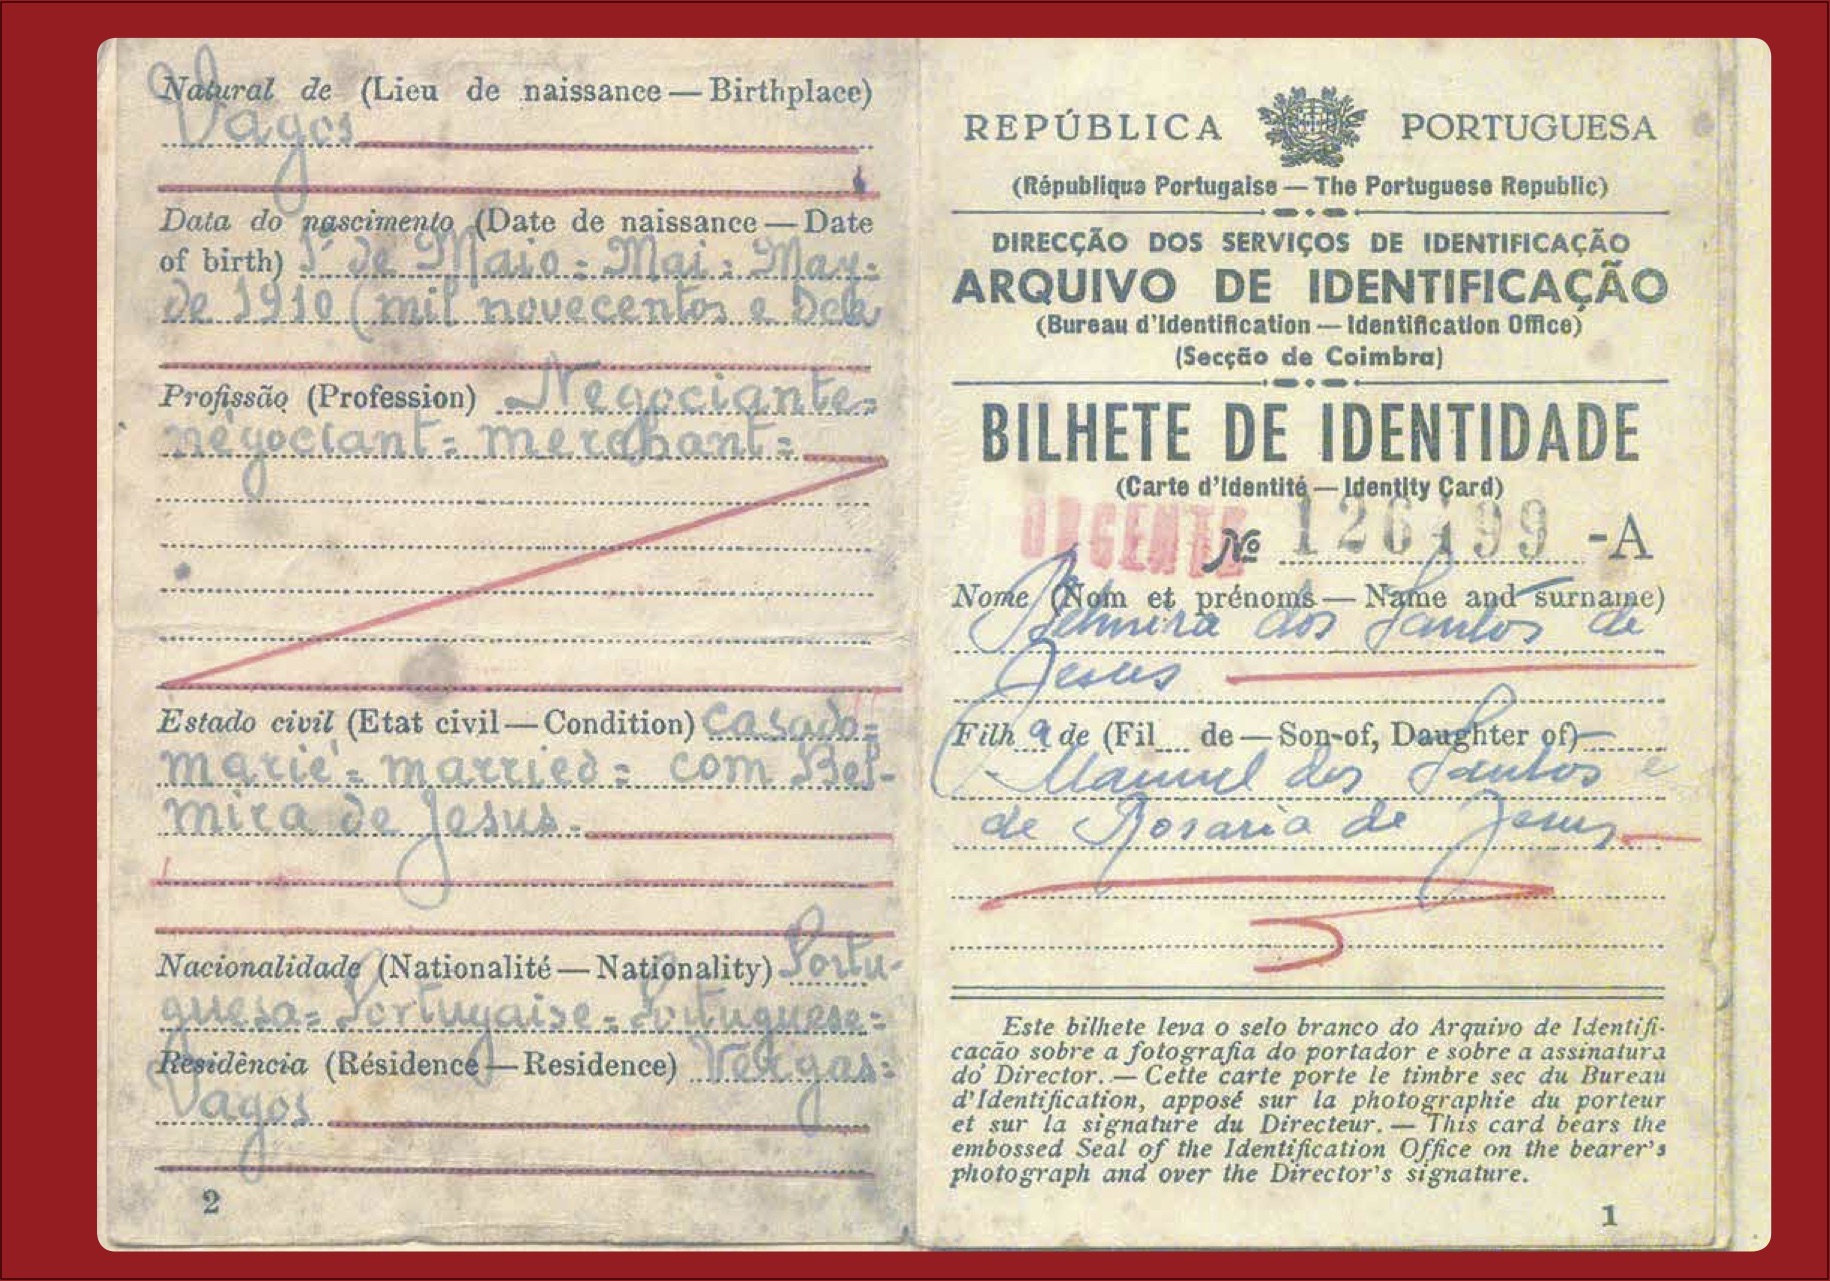 Natural de (Lieu de naissance — Birthplace)
Vagos
Data do nascimento (Date de naissance — Date
of birth) 1º de Maio = Mai = May =
de 1910 (mil novecentos e dez
Profissão (Profession) Negociante =
négociant = merchant =
Estado civil (Etat civil — Condition) casado =
marié = married = com Bel-
mira de Jesus.
Nacionalidade (Nationalité — Nationality) Portu-
guesa = Portugaise = Portuguese =
Residência (Résidence — Residence) Vergas =
Vagos
2
REPÚBLICA PORTUGUESA
(République Portugaise — The Portuguese Republic)
DIRECÇÃO DOS SERVIÇOS DE IDENTIFICAÇÃO
ARQUIVO DE IDENTIFICAÇÃO
(Bureau d'Identification — Identification Office)
(Secção de Coimbra)
BILHETE DE IDENTIDADE
(Carte d'Identité — Identity Card)
URGENTE Nº -A
Nome (Nom et prénoms — Name and surname)
Belmira dos Santos de
Jesus
Filh a de (Fil.... de — Son-of, Daughter of)
Manuel dos Santos e
de Rosaria de Jesus
Este bilhete leva o selo branco do Arquivo de Identifi-
cacão sobre a fotografia do portador e sobre a assinatura
do Director. — Cette carte porte le timbre sec du Bureau
d'Identification, apposé sur la photographie du porteur
et sur la signature du Directeur. — This card bears the
embossed Seal of the Identification Office on the bearer's
photograph and over the Director's signature.
1